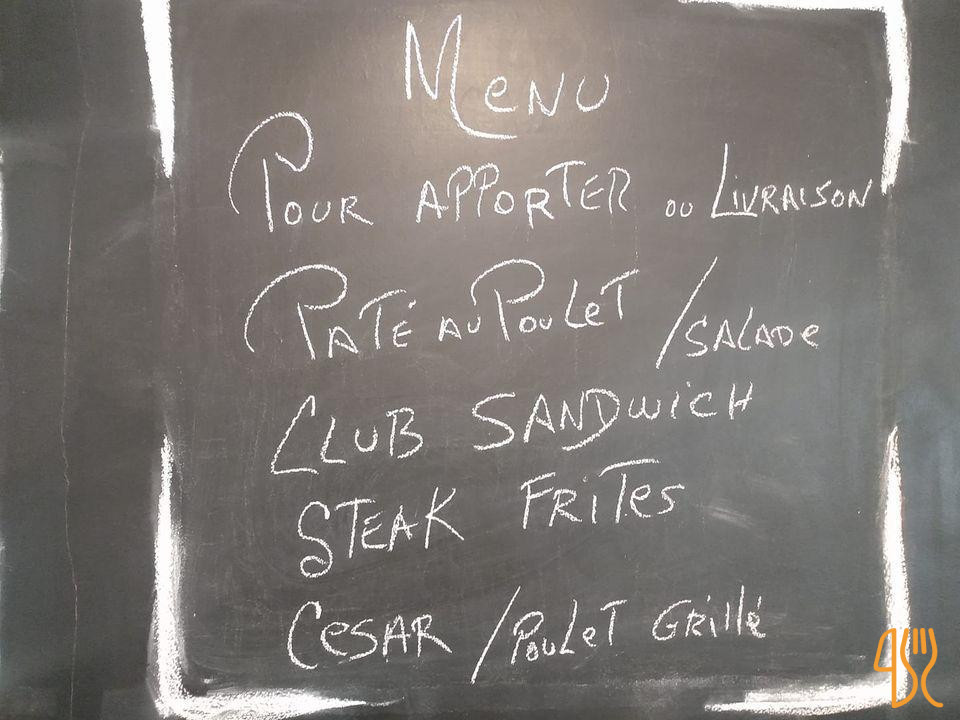 Menu
Pour apporter ou Livraison
Paté au Poulet / salade
Club Sandwich
Steak Frites
Cesar / Poulet Grillé